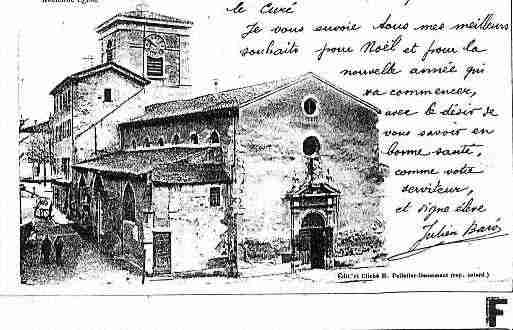 Ancienne Église
le Curé
Je vous envoie tous mes meilleurs
souhaits pour Noël et pour la
nouvelle année qui
va commencer,
avec le désir de
vous savoir en
bonne santé,
comme votre
serviteur,
et digne élève
Julien
Édit. et Cliché M. (rep. interd.)
F